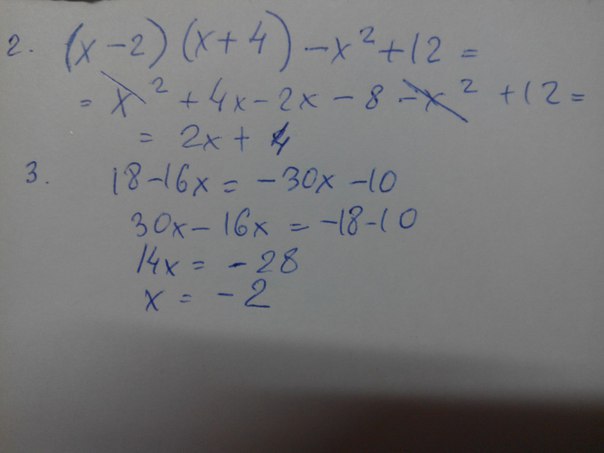 2. (x-2)(x+4)-x²+12=
=x²+4x-2x-8-x²+12=
=2x+4
3. 18-16x=-30x-10
30x-16x=-18-10
14x=-28
x=-2